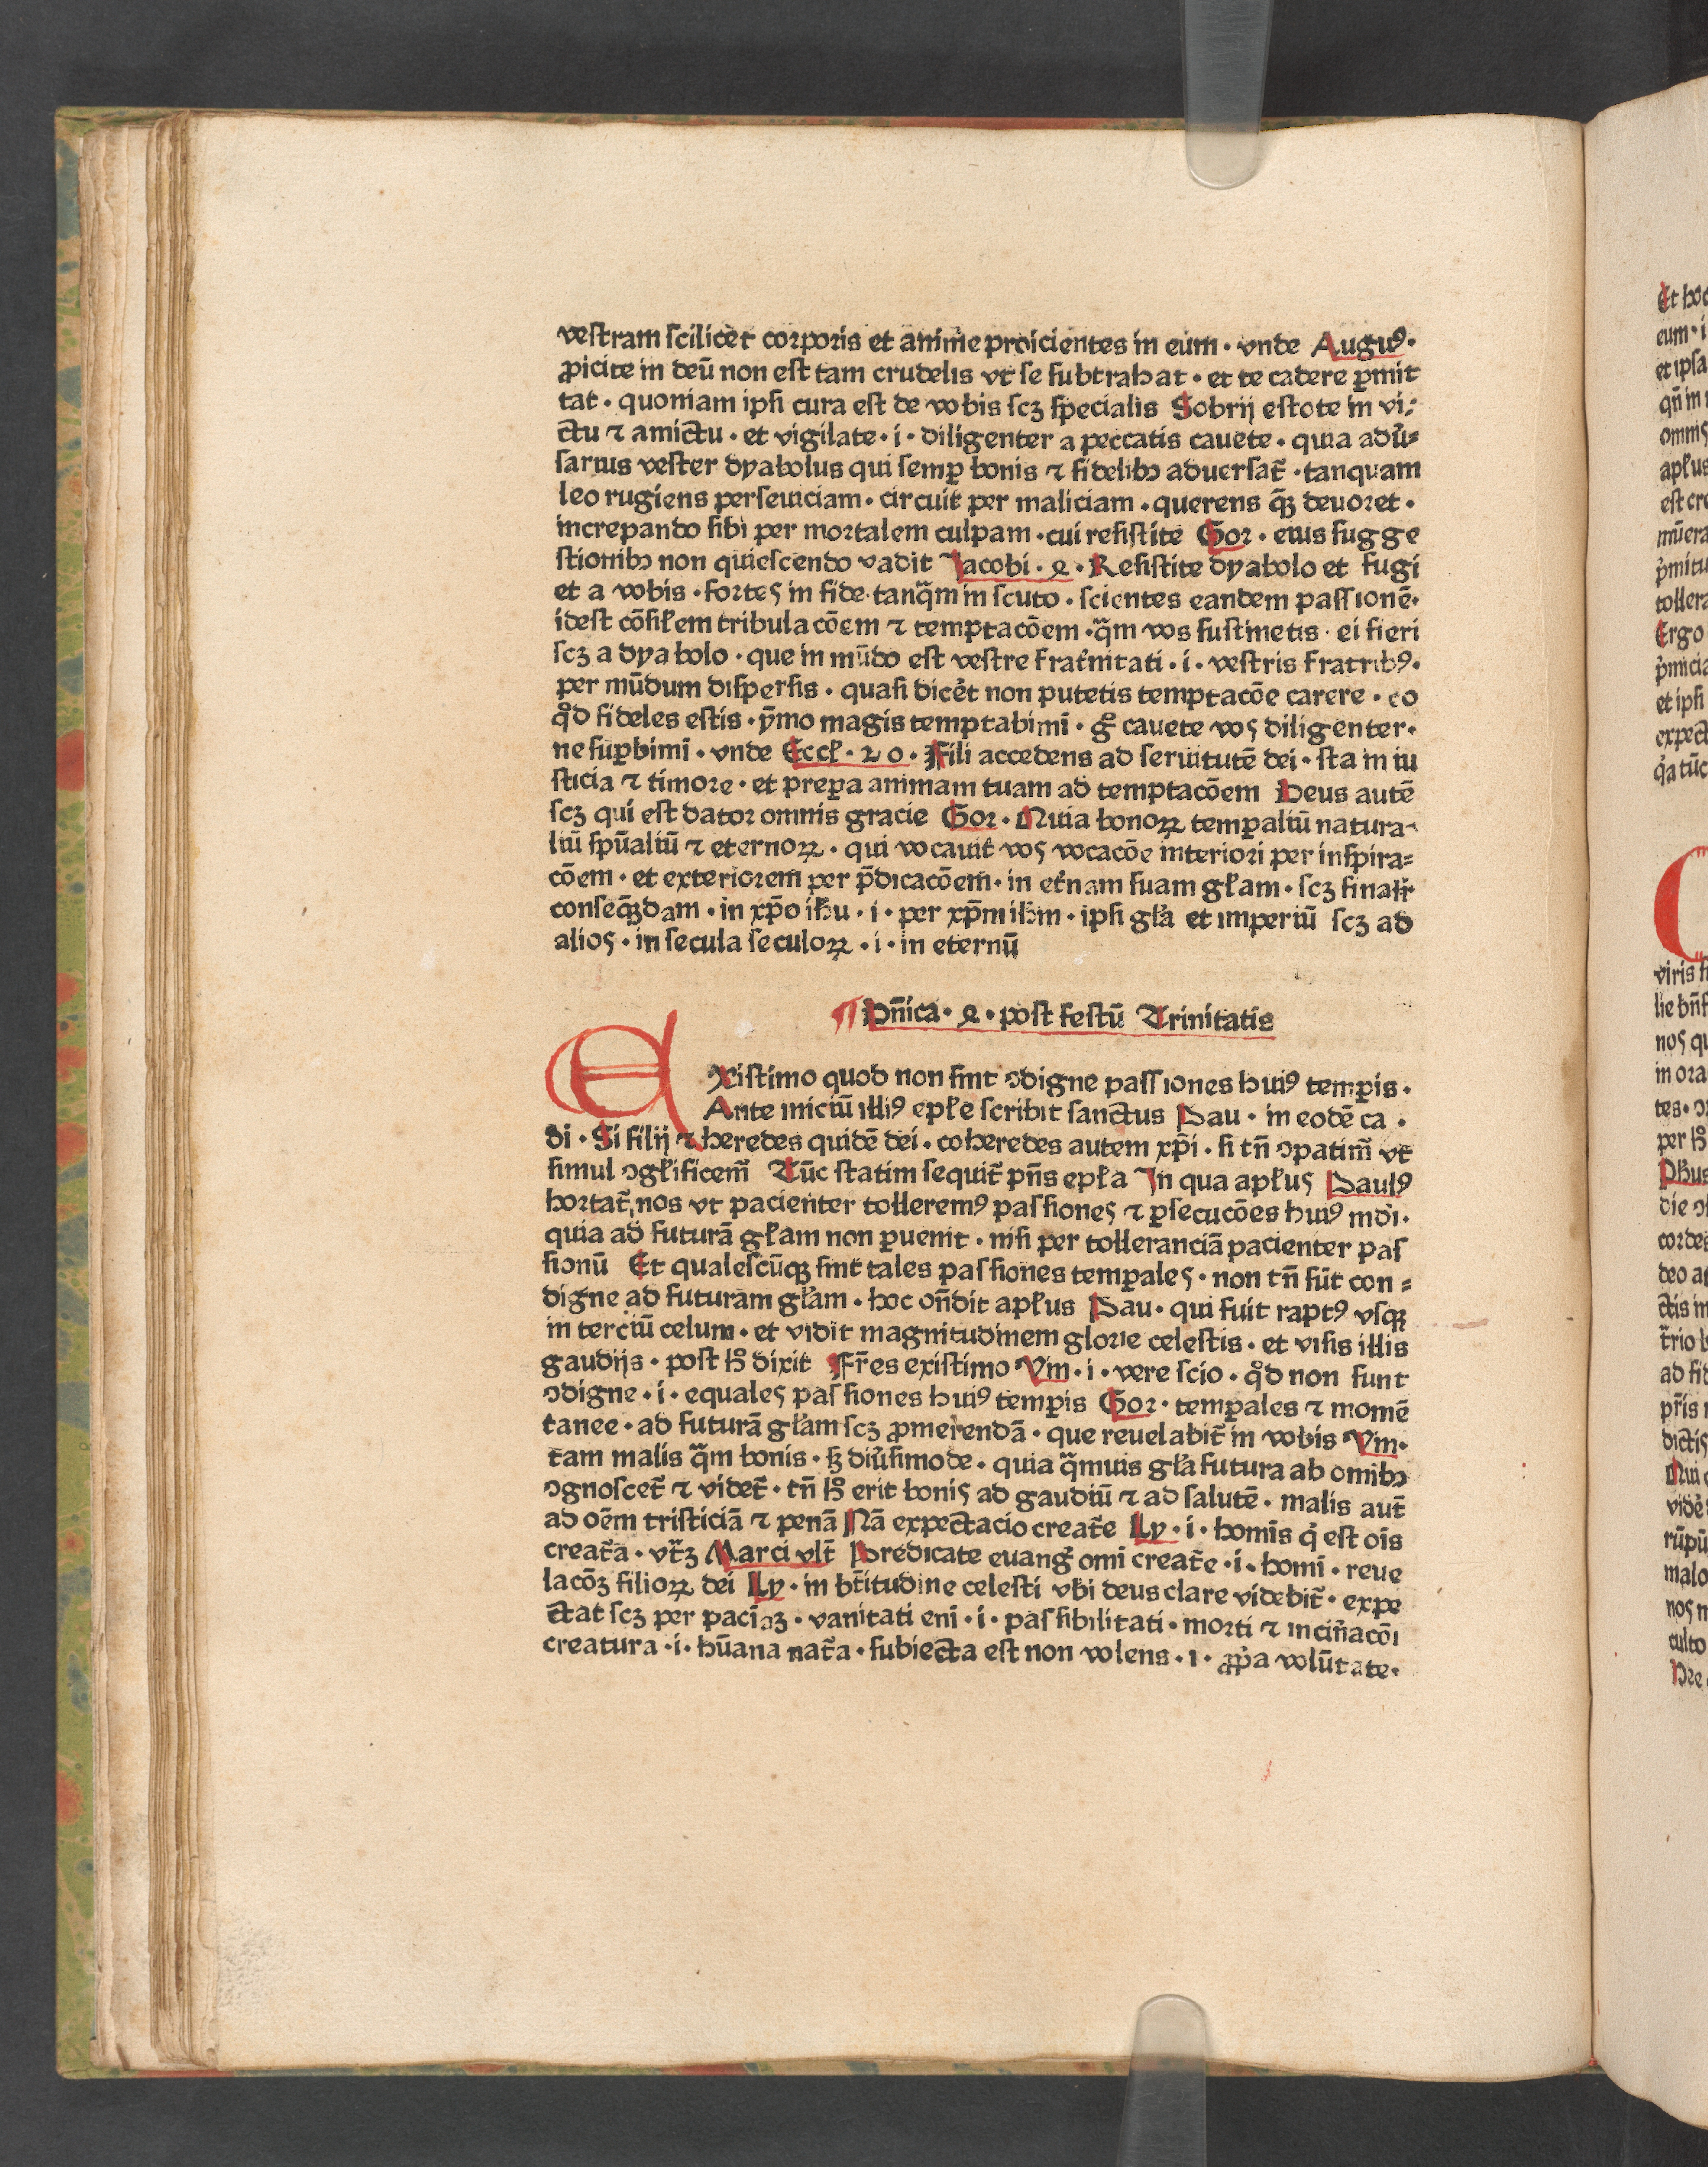 vestram scilicet corporis et anime proicientes in eum · vnde Augusꝰ·
ꝓicite in deū non est tam crudelis vt se subtrahat · et te cadere ꝑmit
tat · quoniam ipsi cura est de vobis scꝫ specialis Sobrij estote in vi⸗
ctu ⁊ amictu · et vigilate · i · diligenter a peccatis cauete · quia adu̓⸗
sarius vester dyabolus qui semꝑ bonis ⁊ fidelibꝫ aduersat̄ · tanquam
leo rugiens perseuiciam · circuit per maliciam · querens q̄ꝫ deuoret ·
increpando sibi per mortalem culpam · cui resistite Gor · eius sugge
stionibꝫ non quiescendo vadit Jacobi · 4 · Resistite dyabolo et fugi
et a vobis · fortes in fide · tanq̄m in scuto · scientes eandem passionē·
idest cōsiłem tribulacōem ⁊ temptacōem · q̄m vos sustinetis · ei fieri
scꝫ a dyabolo · que in mūdo est vestre frat̓nitati · i · vestris fratribꝰ·
per mūdum dispersis · quasi dicet̓ non putetis temptacōe carere · eo
qͦd fideles estis · ȳmo magis temptabimī · gͦ cauete vos diligenter·
ne suꝑbimī · vnde Eccł · 20 · Fili accedens ad seruitutē dei · sta in iu
sticia ⁊ timore · et prepa animam tuam ad temptacōem Deus autē
scꝫ qui est dator omnis gracie Gor · Quia bonoꝝ temꝑaliū natura⸗
liū spūaliū ⁊ eternoꝝ · qui vocauit vos vocacōe interiori per inspira⸗
cōem · et exteriorem per p̄dicacōem · in et̓nam suam głam · scꝫ finalit̓
conseq̄ꝫdam · in xp̄o ih̄u · i · per xp̄m ih̄m · ipsi gła et imperiū scꝫ ad
alios · in secula seculoꝝ · i · in eternū
¶ Dn̄ica · 4 · post festū Trinitatis
Existimo quod non sint ↄdigne passiones huiꝰ temꝑis ·
Ante iniciū illiꝰ epłe scribit sanctus Pau · in eodē ca ·
di · Si filij ⁊ heredes quidē dei · coheredes autem xp̄i · si tn̄ ↄpatim̄ vt
simul ↄgłificem̄ Tūc statim sequit̄ pn̄s epła In qua apłus Paulꝰ
hortat̄ nos vt pacienter tolleremꝰ passiones ⁊ ꝑsecucōes huiꝰ mdi·
quia ad futurā głam non ꝑuenit · nisi per tolleranciā pacienter pas
sionū Et qualescūqꝫ sint tales passiones temꝑales · non tn̄ sūt con⸗
digne ad futuram głam · hoc on̄dit apłus Pau · qui fuit raptꝰ vsqꝫ
in terciū celum · et vidit magnitudinem glorie celestis · et visis illis
gaudijs · post hͦ dixit Fr̄es existimo Vm · i · vere scio · qͦd non sunt
ↄdigne · i · equales passiones huiꝰ temꝑis Gor · temꝑales ⁊ momē
tanee · ad futurā głam scꝫ ꝓmerendā · que reuelabit̄ in vobis Vm·
tam malis q̄m bonis · sꝫ diu̓simode · quia q̄muis gła futura ab omibꝫ
ↄgnoscet̄ ⁊ videt̄ · tn̄ hͦ erit bonis ad gaudiū ⁊ ad salutē · malis aut̄
ad oēm tristiciā ⁊ penā Nā expectacio creat̄e Ly · i · homīs q̓ est oīs
creat̄a · vt̄ꝫ Marci vlt̄ Predicate euang̓ omī creat̄e · i · homī · reue
lacōꝫ filioꝝ dei Ly · in bt̄itudine celesti vbi deus clare videbit̄ · expe
ctat scꝫ per paciaꝫ · vanitati enī · i · passibilitati · morti ⁊ incin̓acōi
creatura · i · hūana nat̄a · subiecta est non volens · i · ꝓp̓a volūtate·